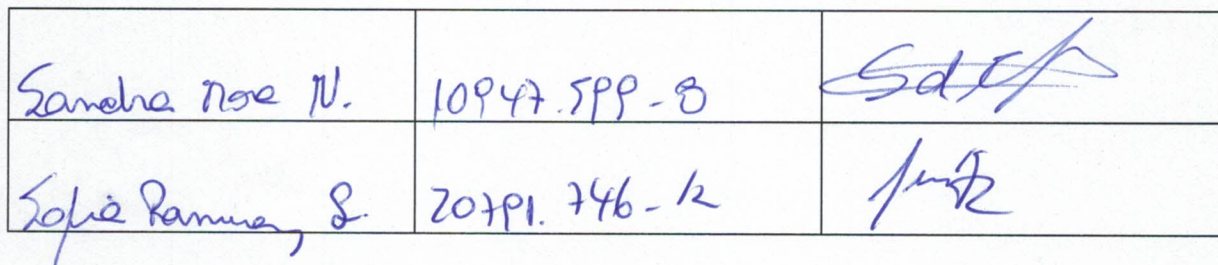 Sandra Mora N. 10947.599-8
Sofia Ramirez S. 20791.746-K